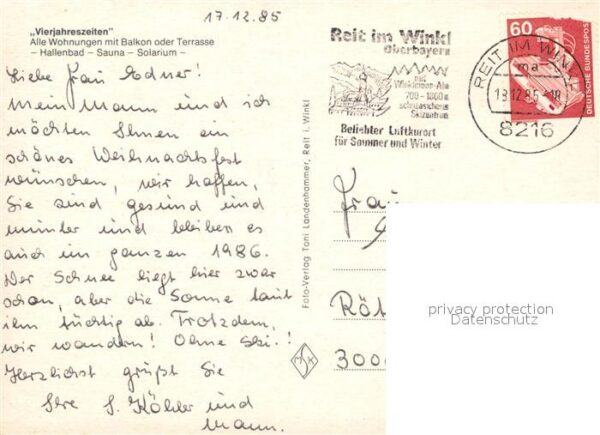 17.12.85
„Vierjahreszeiten"
Alle Wohnungen mit Balkon oder Terrasse
– Hallenbad – Sauna – Solarium –
Liebe Frau Edner!
Mein Mann und ich
möchten Ihnen ein
schönes Weihnachtsfest
wünschen, wir hoffen,
Sie sind gesund und
munter und bleiben es
auch im ganzen 1986.
Der Schnee liegt hier zwar
schon, aber die Sonne taut
ihn tüchtig ab. Trotzdem,
wir wandern! Ohne Ski.!
Herzlichst grüßt Sie
Ihre S. Köhler und
Mann.
Foto-Verlag Toni Landenhammer, Reit i. Winkl
MSK
Reit im Winkl
Oberbayern
mit
Winklmoos-Alm
700 - 1800 m
schneesicheres
Skizentrum
Beliebter Luftkurort
für Sommer und Winter
REIT IM WINKL
ma
18.12.85 - 18
8216
60
DEUTSCHE BUNDESPOST
Frau
Röt
3000
privacy protection
Datenschutz